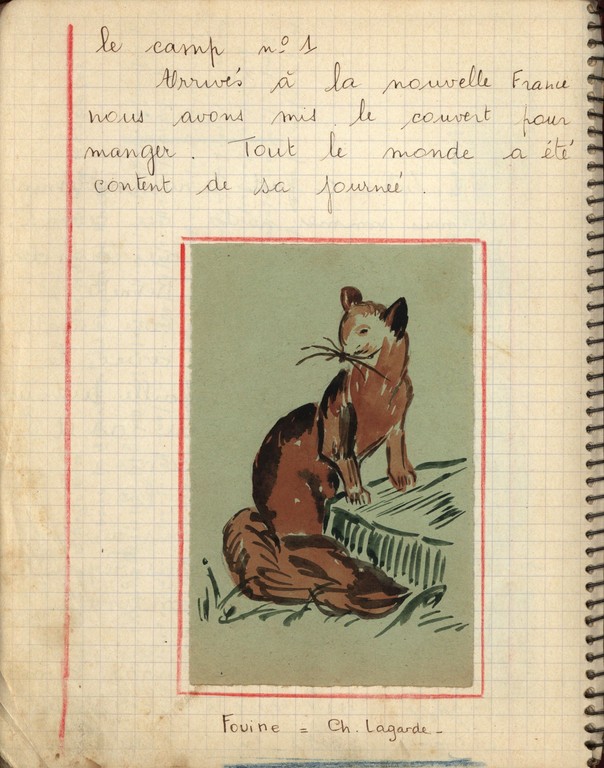 le camp nº 1
Arrivés à la nouvelle France
nous avons mis le couvert pour
manger. Tout le monde a été
content de sa journeé.
Fouine = Ch. Lagarde -